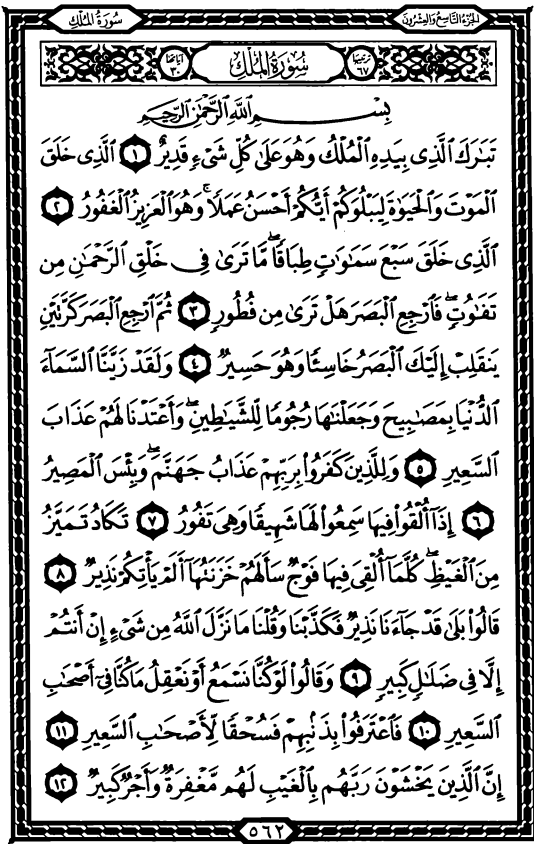 سُورَةُ المُلْكِ
الجُزءُ التَّاسِعُ وَالعِشْرُونَ
تَرْتِيبُهَا ٦٧
سُورَةُ المُلْكِ
آيَاتُهَا ٣٠
بِسْمِ ٱللَّهِ ٱلرَّحْمَٰنِ ٱلرَّحِيمِ
تَبَٰرَكَ ٱلَّذِى بِيَدِهِ ٱلْمُلْكُ وَهُوَ عَلَىٰ كُلِّ شَىْءٍ قَدِيرٌ ١ ٱلَّذِى خَلَقَ
ٱلْمَوْتَ وَٱلْحَيَوٰةَ لِيَبْلُوَكُمْ أَيُّكُمْ أَحْسَنُ عَمَلًا ۚ وَهُوَ ٱلْعَزِيزُ ٱلْغَفُورُ ٢
ٱلَّذِى خَلَقَ سَبْعَ سَمَٰوَٰتٍ طِبَاقًا ۖ مَّا تَرَىٰ فِى خَلْقِ ٱلرَّحْمَٰنِ مِن
تَفَٰوُتٍ ۖ فَٱرْجِعِ ٱلْبَصَرَ هَلْ تَرَىٰ مِن فُطُورٍ ٣ ثُمَّ ٱرْجِعِ ٱلْبَصَرَ كَرَّتَيْنِ
يَنقَلِبْ إِلَيْكَ ٱلْبَصَرُ خَاسِئًا وَهُوَ حَسِيرٌ ٤ وَلَقَدْ زَيَّنَّا ٱلسَّمَآءَ
ٱلدُّنْيَا بِمَصَٰبِيحَ وَجَعَلْنَٰهَا رُجُومًا لِّلشَّيَٰطِينِ ۖ وَأَعْتَدْنَا لَهُمْ عَذَابَ
ٱلسَّعِيرِ ٥ وَلِلَّذِينَ كَفَرُوا۟ بِرَبِّهِمْ عَذَابُ جَهَنَّمَ ۖ وَبِئْسَ ٱلْمَصِيرُ
٦ إِذَآ أُلْقُوا۟ فِيهَا سَمِعُوا۟ لَهَا شَهِيقًا وَهِىَ تَفُورُ ٧ تَكَادُ تَمَيَّزُ
مِنَ ٱلْغَيْظِ ۖ كُلَّمَآ أُلْقِىَ فِيهَا فَوْجٌ سَأَلَهُمْ خَزَنَتُهَآ أَلَمْ يَأْتِكُمْ نَذِيرٌ ٨
قَالُوا۟ بَلَىٰ قَدْ جَآءَنَا نَذِيرٌ فَكَذَّبْنَا وَقُلْنَا مَا نَزَّلَ ٱللَّهُ مِن شَىْءٍ إِنْ أَنتُمْ
إِلَّا فِى ضَلَٰلٍ كَبِيرٍ ٩ وَقَالُوا۟ لَوْ كُنَّا نَسْمَعُ أَوْ نَعْقِلُ مَا كُنَّا فِىٓ أَصْحَٰبِ
ٱلسَّعِيرِ ١٠ فَٱعْتَرَفُوا۟ بِذَنۢبِهِمْ فَسُحْقًا لِّأَصْحَٰبِ ٱلسَّعِيرِ ١١
إِنَّ ٱلَّذِينَ يَخْشَوْنَ رَبَّهُم بِٱلْغَيْبِ لَهُم مَّغْفِرَةٌ وَأَجْرٌ كَبِيرٌ ١٢
٥٦٢